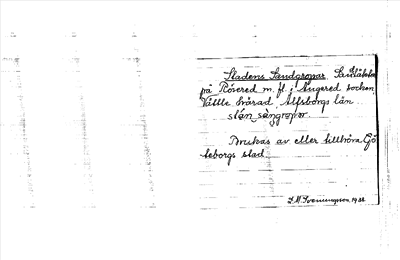 Stadens Sandgropar. Sandtäkter
på Rövered m. fl. i Angered socken
Vättle härad, Älfsborgs län.
stán sàngropar.
Brukas av eller tillhöra Gö-
teborgs stad.
1931